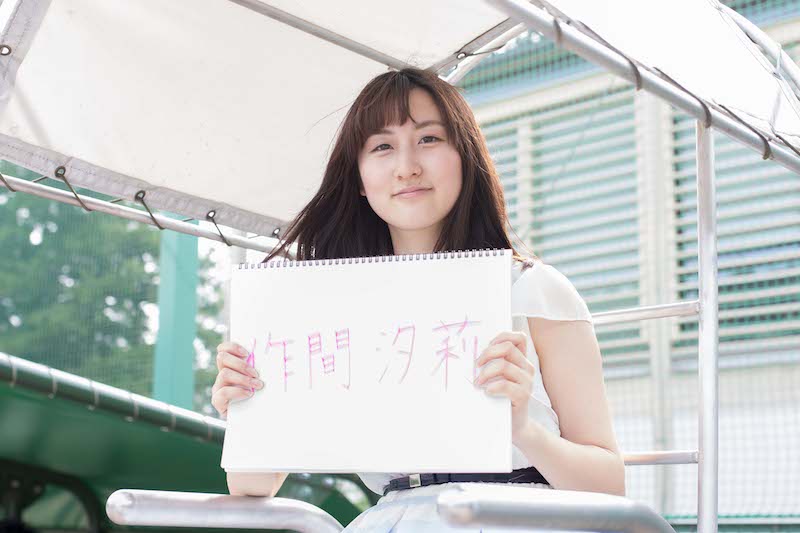 作間 汐莉